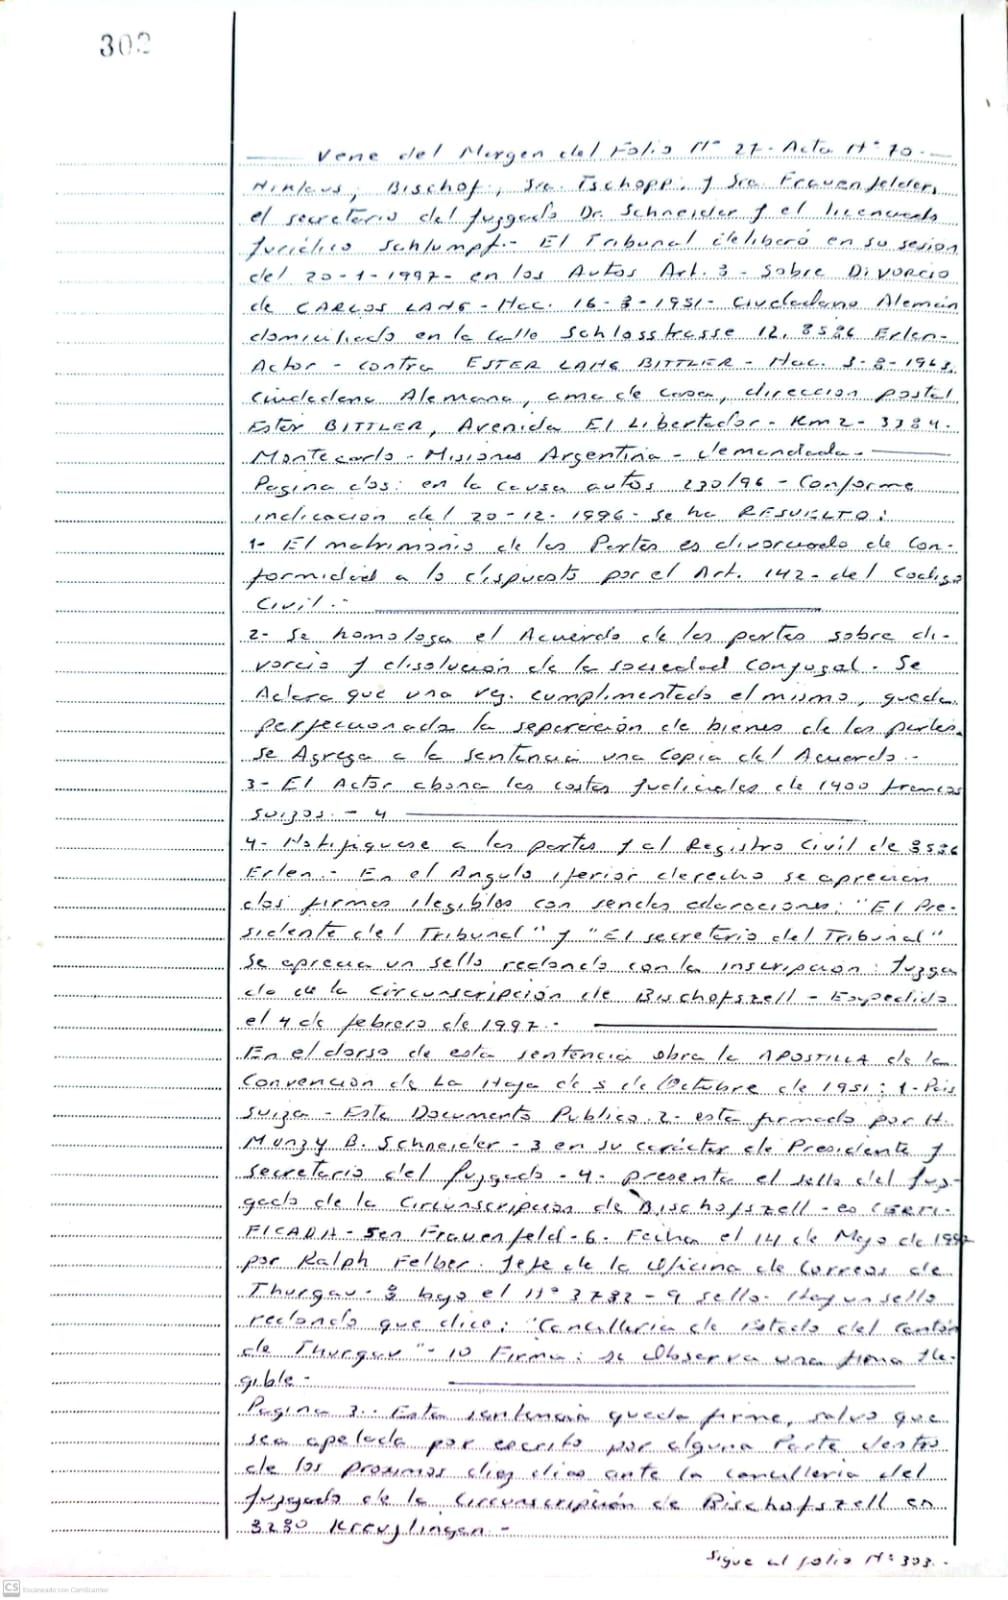 302
Viene del Margen del Folio Nº 27. Acta Nº 70.
Niklaus, Bischof, Sra. Tschopp, y Sra. Frauenfelder,
el secretario del juzgado Dr. Schneider y el licenciado
jurídico Schlumpf.- El Tribunal deliberó en su sesion
del 20-1-1997- en los Autos Art. 3 - Sobre Divorcio
de CARLOS LANG - Nac. 16-3-1951- Ciudadano Alemán
domiciliado en la Calle Schlosstrasse 12, 8586 Erlen-
Actor - contra ESTER LANG BITTLER - Nac. 3-8-1963,
Ciudadana Alemana, ama de casa, direccion postal
Ester BITTLER, Avenida El Libertador - Km 2 - 3384.
Montecarlo - Misiones Argentina - demandada.-
Pagina dos: en la causa autos 230/96 - Conforme
indicacion del 20-12-1996- se ha RESUELTO:
1- El matrimonio de las Partes es divorciado de Con-
formidad a lo dispuesto por el Art. 142- del Codigo
Civil.-
2- Se homologa el Acuerdo de las partes sobre di-
vorcio y disolución de la sociedad conyugal. Se
Aclara que una vez cumplimentado el mismo, queda
perfeccionada la separación de bienes de las partes.
se Agrega a la sentencia una Copia del Acuerdo.-
3- El Actor abona las costas judiciales de 1400 francos
suizos. - 4
4- Notifiquese a las partes y al Registro Civil de 8586
Erlen.- En el Angulo iferior derecho se aprecian
dos firmas ilegibles con sendas aclaraciones: "El Pre-
sidente del Tribunal" y "El secretario del Tribunal"
se aprecia un sello redondo con la inscripción: Juzga
do de la Circunscripción de Bischofszell - Expedido
el 4 de febrero de 1997.-
En el dorso de esta sentencia obra la APOSTILLA de la
Convencion de La Haya de 5 de Octubre de 1951: 1- Pais
Suiza - Este Documento Publico. 2- esta firmado por H.
Munz y B. Schneider - 3 en su carácter de Presidente y
secretario del juzgado - 4- presenta el sello del juz-
gado de la Circunscripcion de Bischofszell - es CERTI-
FICADA - 5 en Frauenfeld - 6. Fecha el 14 de Mayo de 1997
por Ralph Felber. Jefe de la Oficina de Correos de
Thurgau - 8 bajo el Nº 3732 - 9 sello. Hay un sello
redondo que dice: "Cancilleria de Estado del Cantón
de Thurgau" - 10 Firma: se Observa una firma Ile-
gible -
Pagina 3.. Esta sentencia queda firme, salvo que
sea apelada por escrito por alguna Parte dentro
de los proximos diez dias ante la cancilleria del
juzgado de la Circunscripción de Bischofszell en
3280 Kreuzlingen -
Sigue al folio Nº 303.-
CS Escaneado con CamScanner